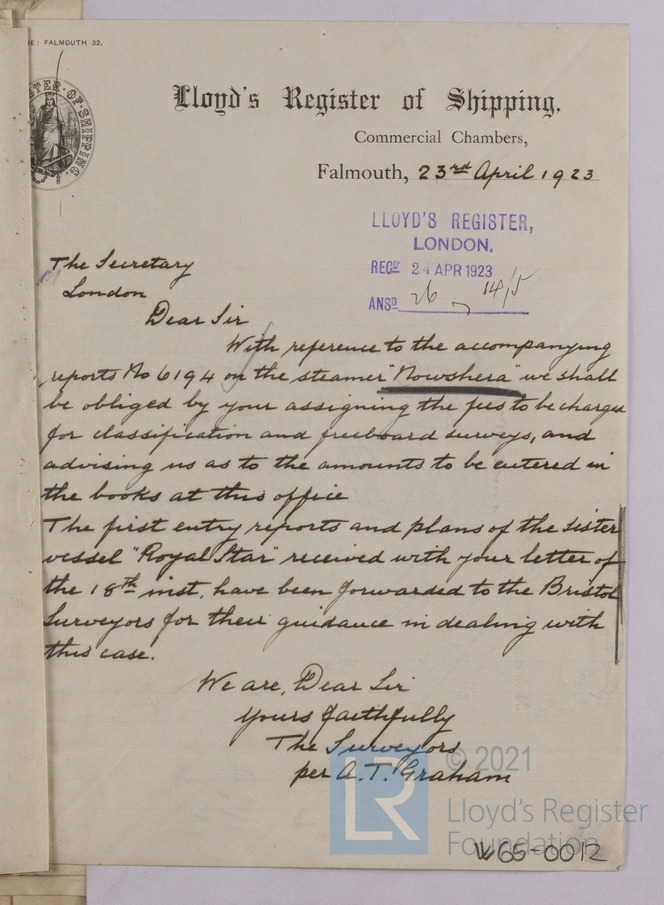 : FALMOUTH 32.
Lloyd's Register of Shipping,
Commercial Chambers,
Falmouth, 23rd April 1923
LLOYD'S REGISTER,
LONDON.
RECD 24 APR 1923
ANSD 26 14/5
The Secretary
London
Dear Sir
With reference to the accompanying
reports No 6194 on the steamer "Nowshera" we shall
be obliged by your assigning the fees to be charged
for classification and freeboard surveys, and
advising us as to the amounts to be entered in
the books at this office
The first entry reports and plans of the sister
vessel "Royal Star" received with your letter of
the 18th inst, have been forwarded to the Bristol
Surveyors for their guidance in dealing with
this case.
We are, Dear Sir
Yours faithfully
The Surveyors
per A.T. Graham
LR
© 2021
Lloyd's Register
Foundation
W65-0012